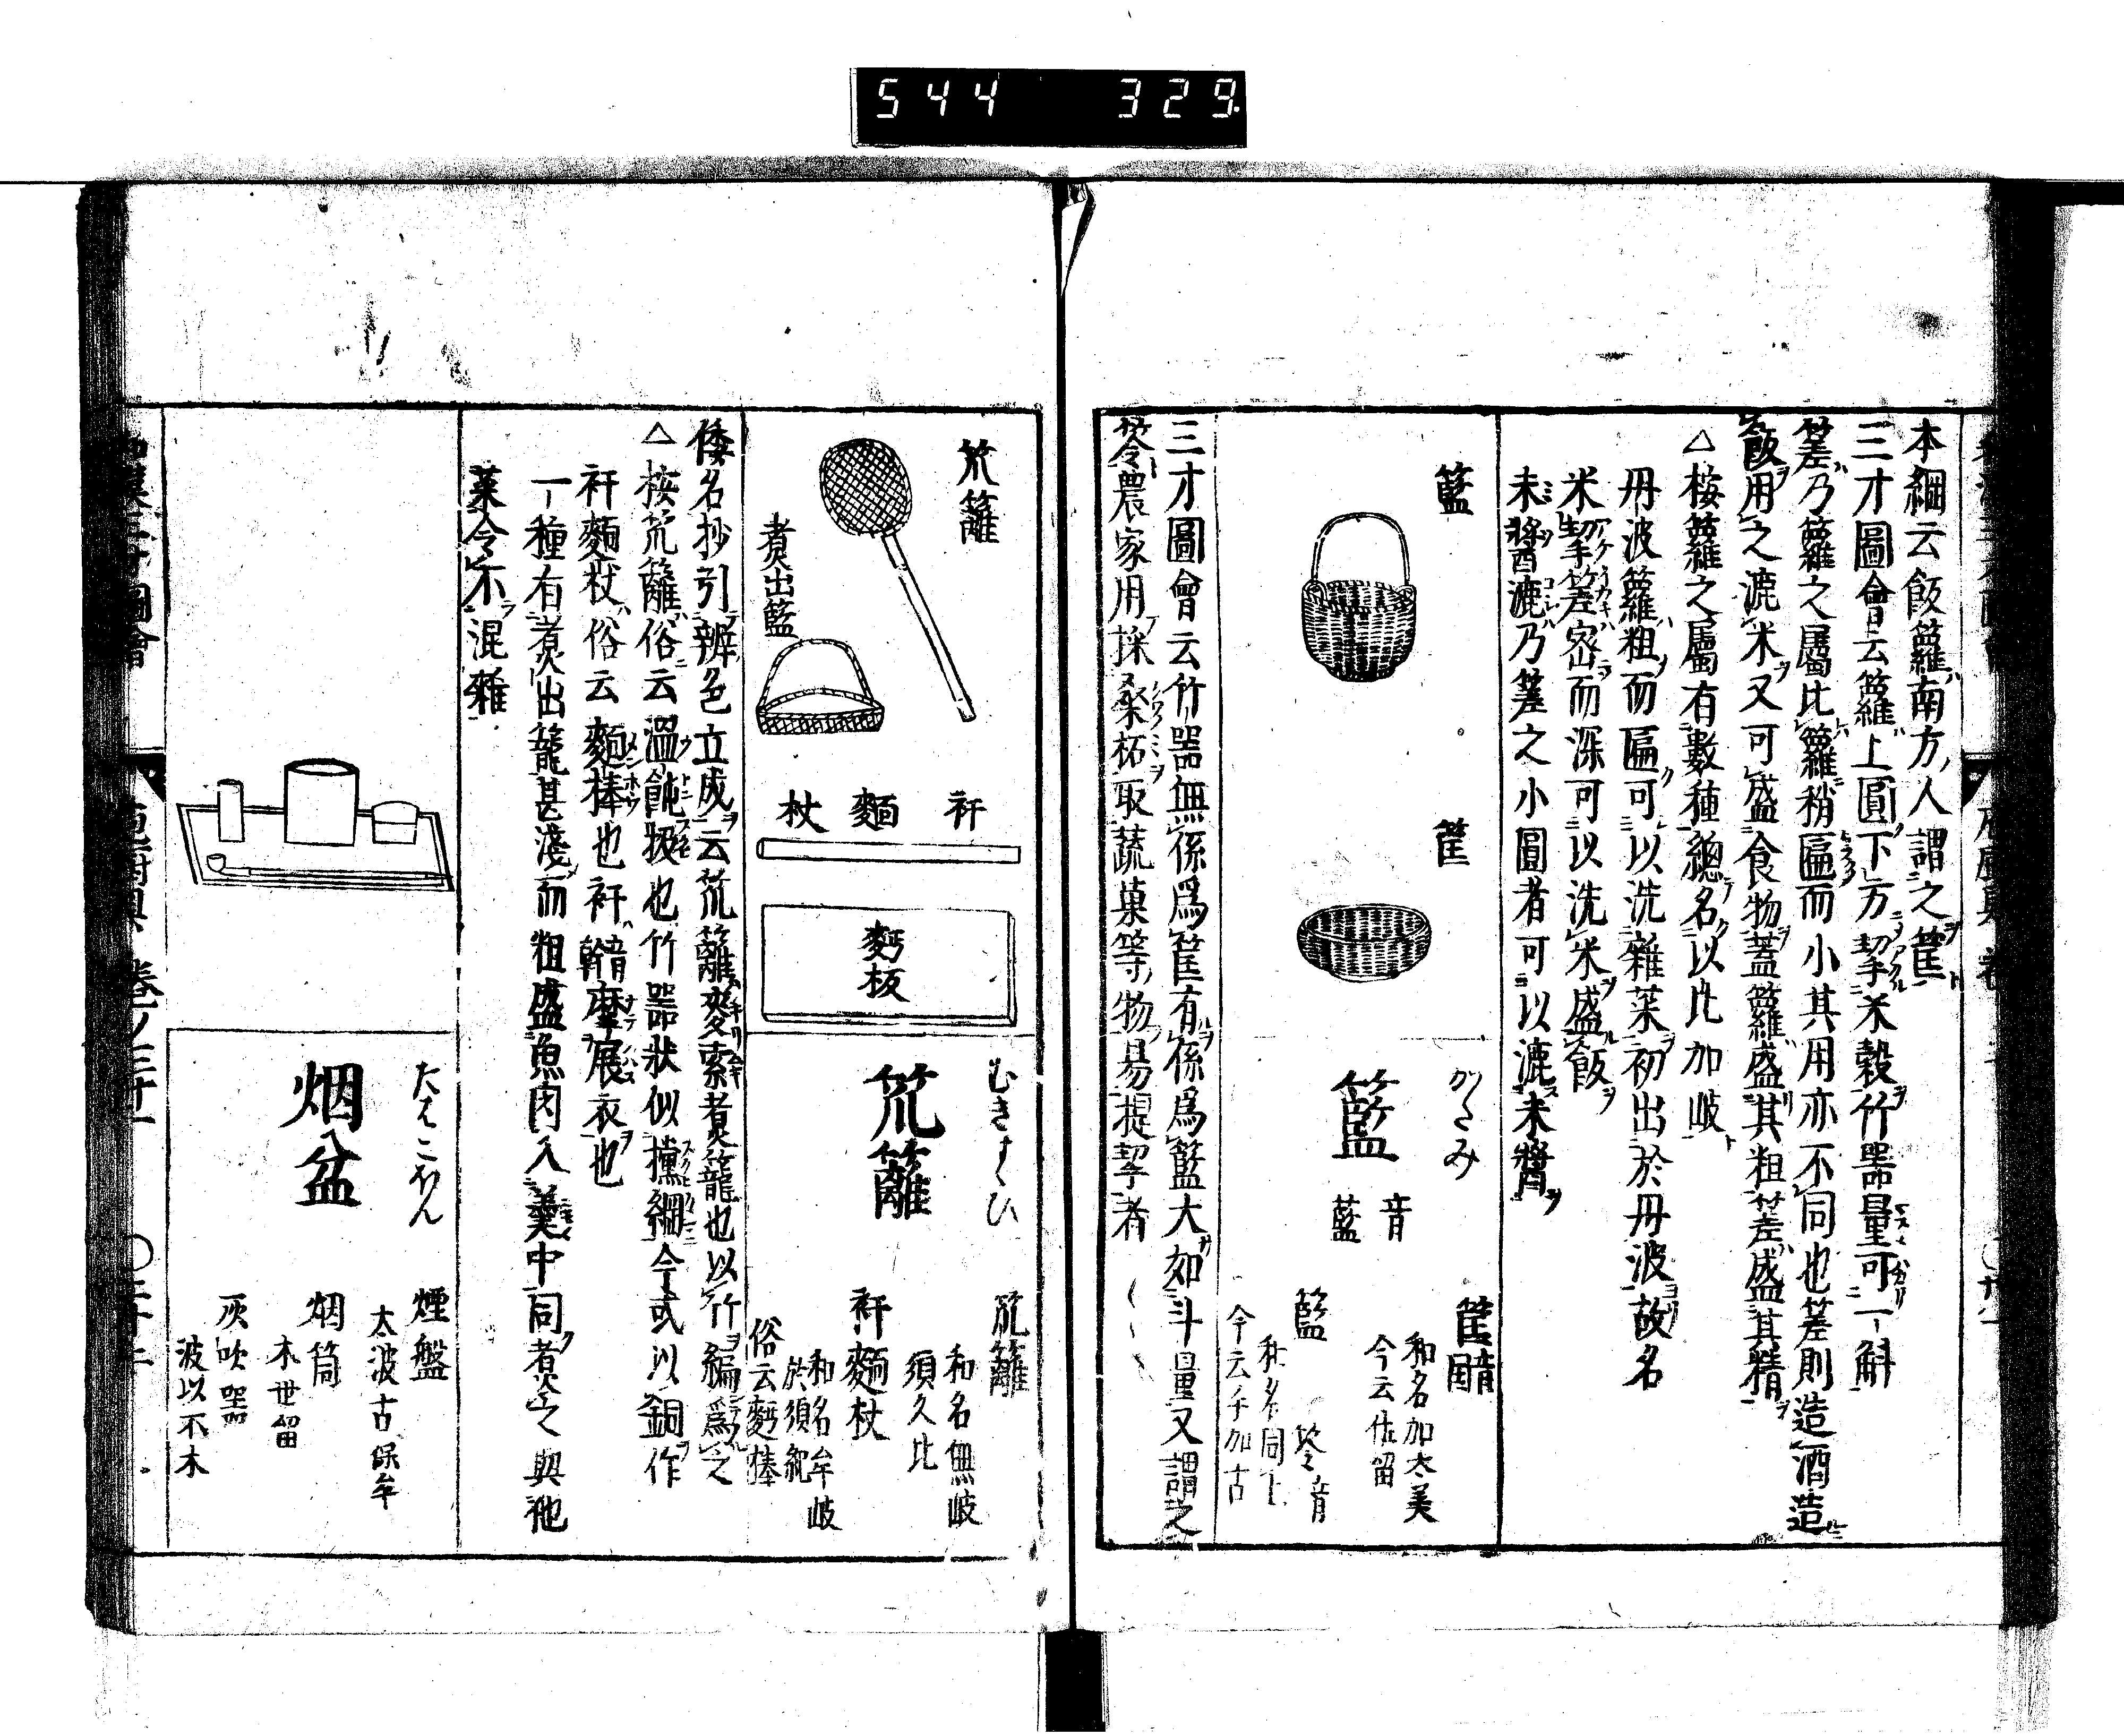 544 329
本綱云飯籮南方人謂之筐
三才圖會云籮上圓下方挈米穀竹器量可一斛
簁乃籮之屬比籮稍匾而小其用亦不同也
飯用之漉米又可盛食物蓋籮盛其粗簁盛其精
△按籮之屬有數種總名以比加岐
丹波籮粗而匾可以洗雜菜初出於丹波故名
米𥬠密而深可以洗米盛飯
未醬漉乃𥬠之小圓者可以漉未醬
籃
筐
かたみ
籃
音藍
筐音匡
和名加太美
今云佐留
籃
和名同上
今云手加古
笭音
三才圖會云竹器無係爲筐有係爲籃大如斗量又謂之
笭農家用採桑柘取蔬菓等物易提挈者
笊籬
煮出籃
衦麵杖
麪板
むきすくひ
笊籬
笊籬
和名無岐
須久比
衦麵杖
和名牟岐
於須紀
俗云麪棒
倭名抄引辨色立成云笊籬麥索煮籠也以竹編爲之
△按笊籬俗云溫飩扱也竹器狀似攩網今或以銅作
衦麵杖俗云麵棒也衦音幹摩展衣也
一種有煮出籠甚淺而粗盛魚肉入羹中同煮之與他
菜令不混雜
たばこぼん
烟盆
煙盤
太波古保牟
烟筒
木世留
灰吹器
波以不木